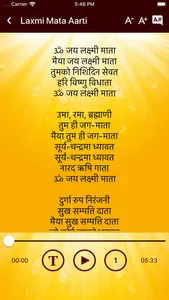 5:48 PM
Laxmi Mata Aarti
A- A+ अA
ॐ जय लक्ष्मी माता
मैया जय लक्ष्मी माता
तुमको निशिदिन सेवत
हरि विष्णु विधाता
ॐ जय लक्ष्मी माता
उमा, रमा, ब्रह्माणी
तुम ही जग-माता
मैया तुम ही जग-माता
सूर्य-चन्द्रमा ध्यावत
सूर्य-चन्द्रमा ध्यावत
नारद ऋषि गाता
ॐ जय लक्ष्मी माता
दुर्गा रुप निरंजनी
सुख सम्पत्ति दाता
मैया सुख सम्पत्ति दाता
00:00 T 1 05:33